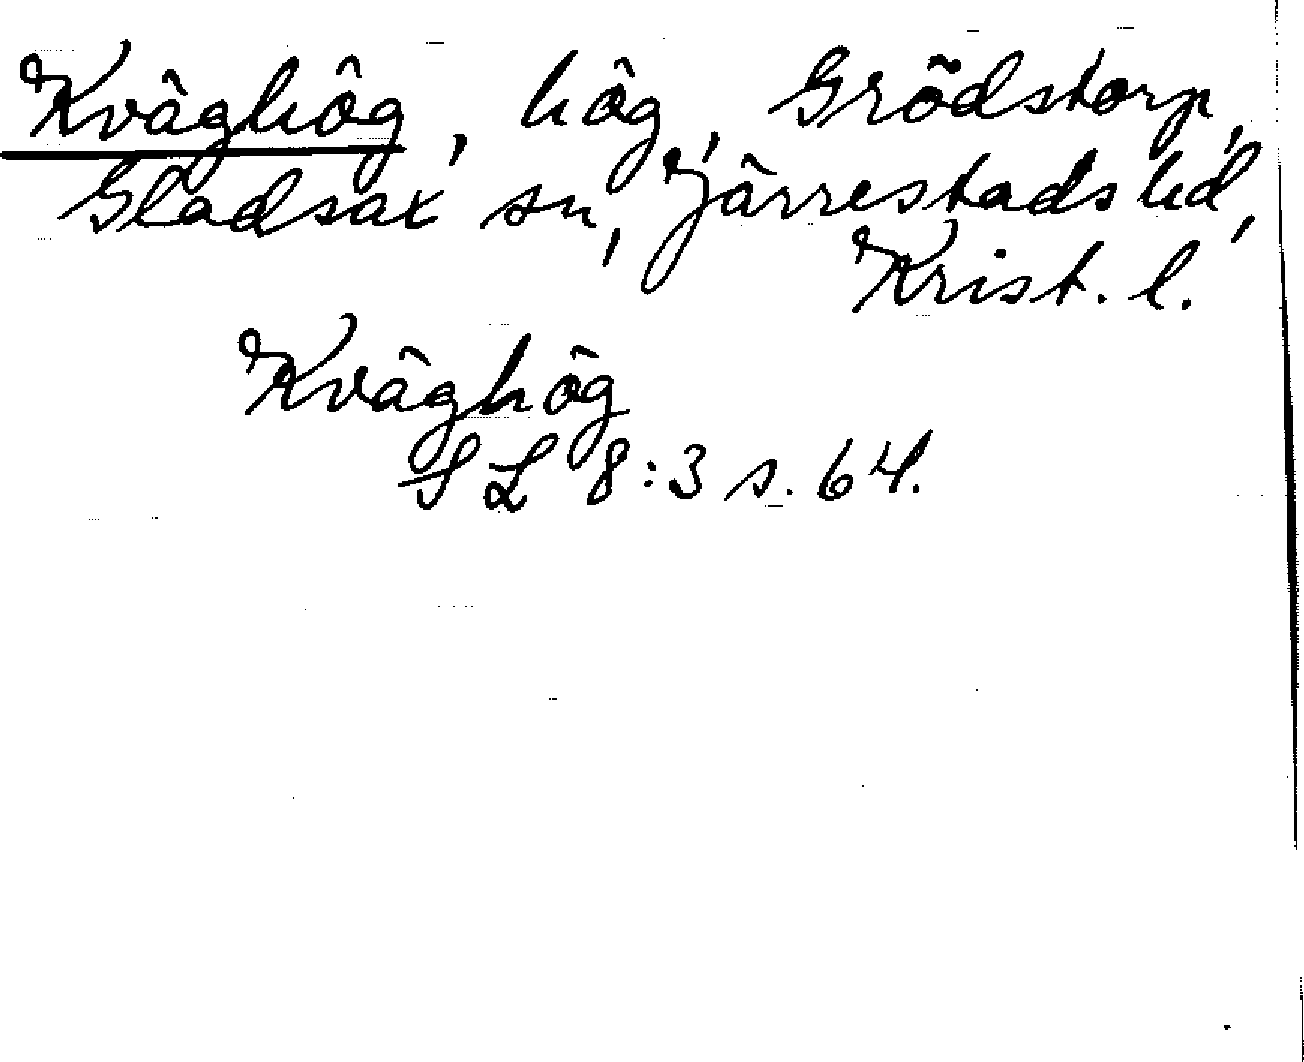 Kväghög, hög, Grödstorp,
Gladsax sn, Järrestads hd,
Krist. l.
Kväghög
SL 8:3 s. 64.